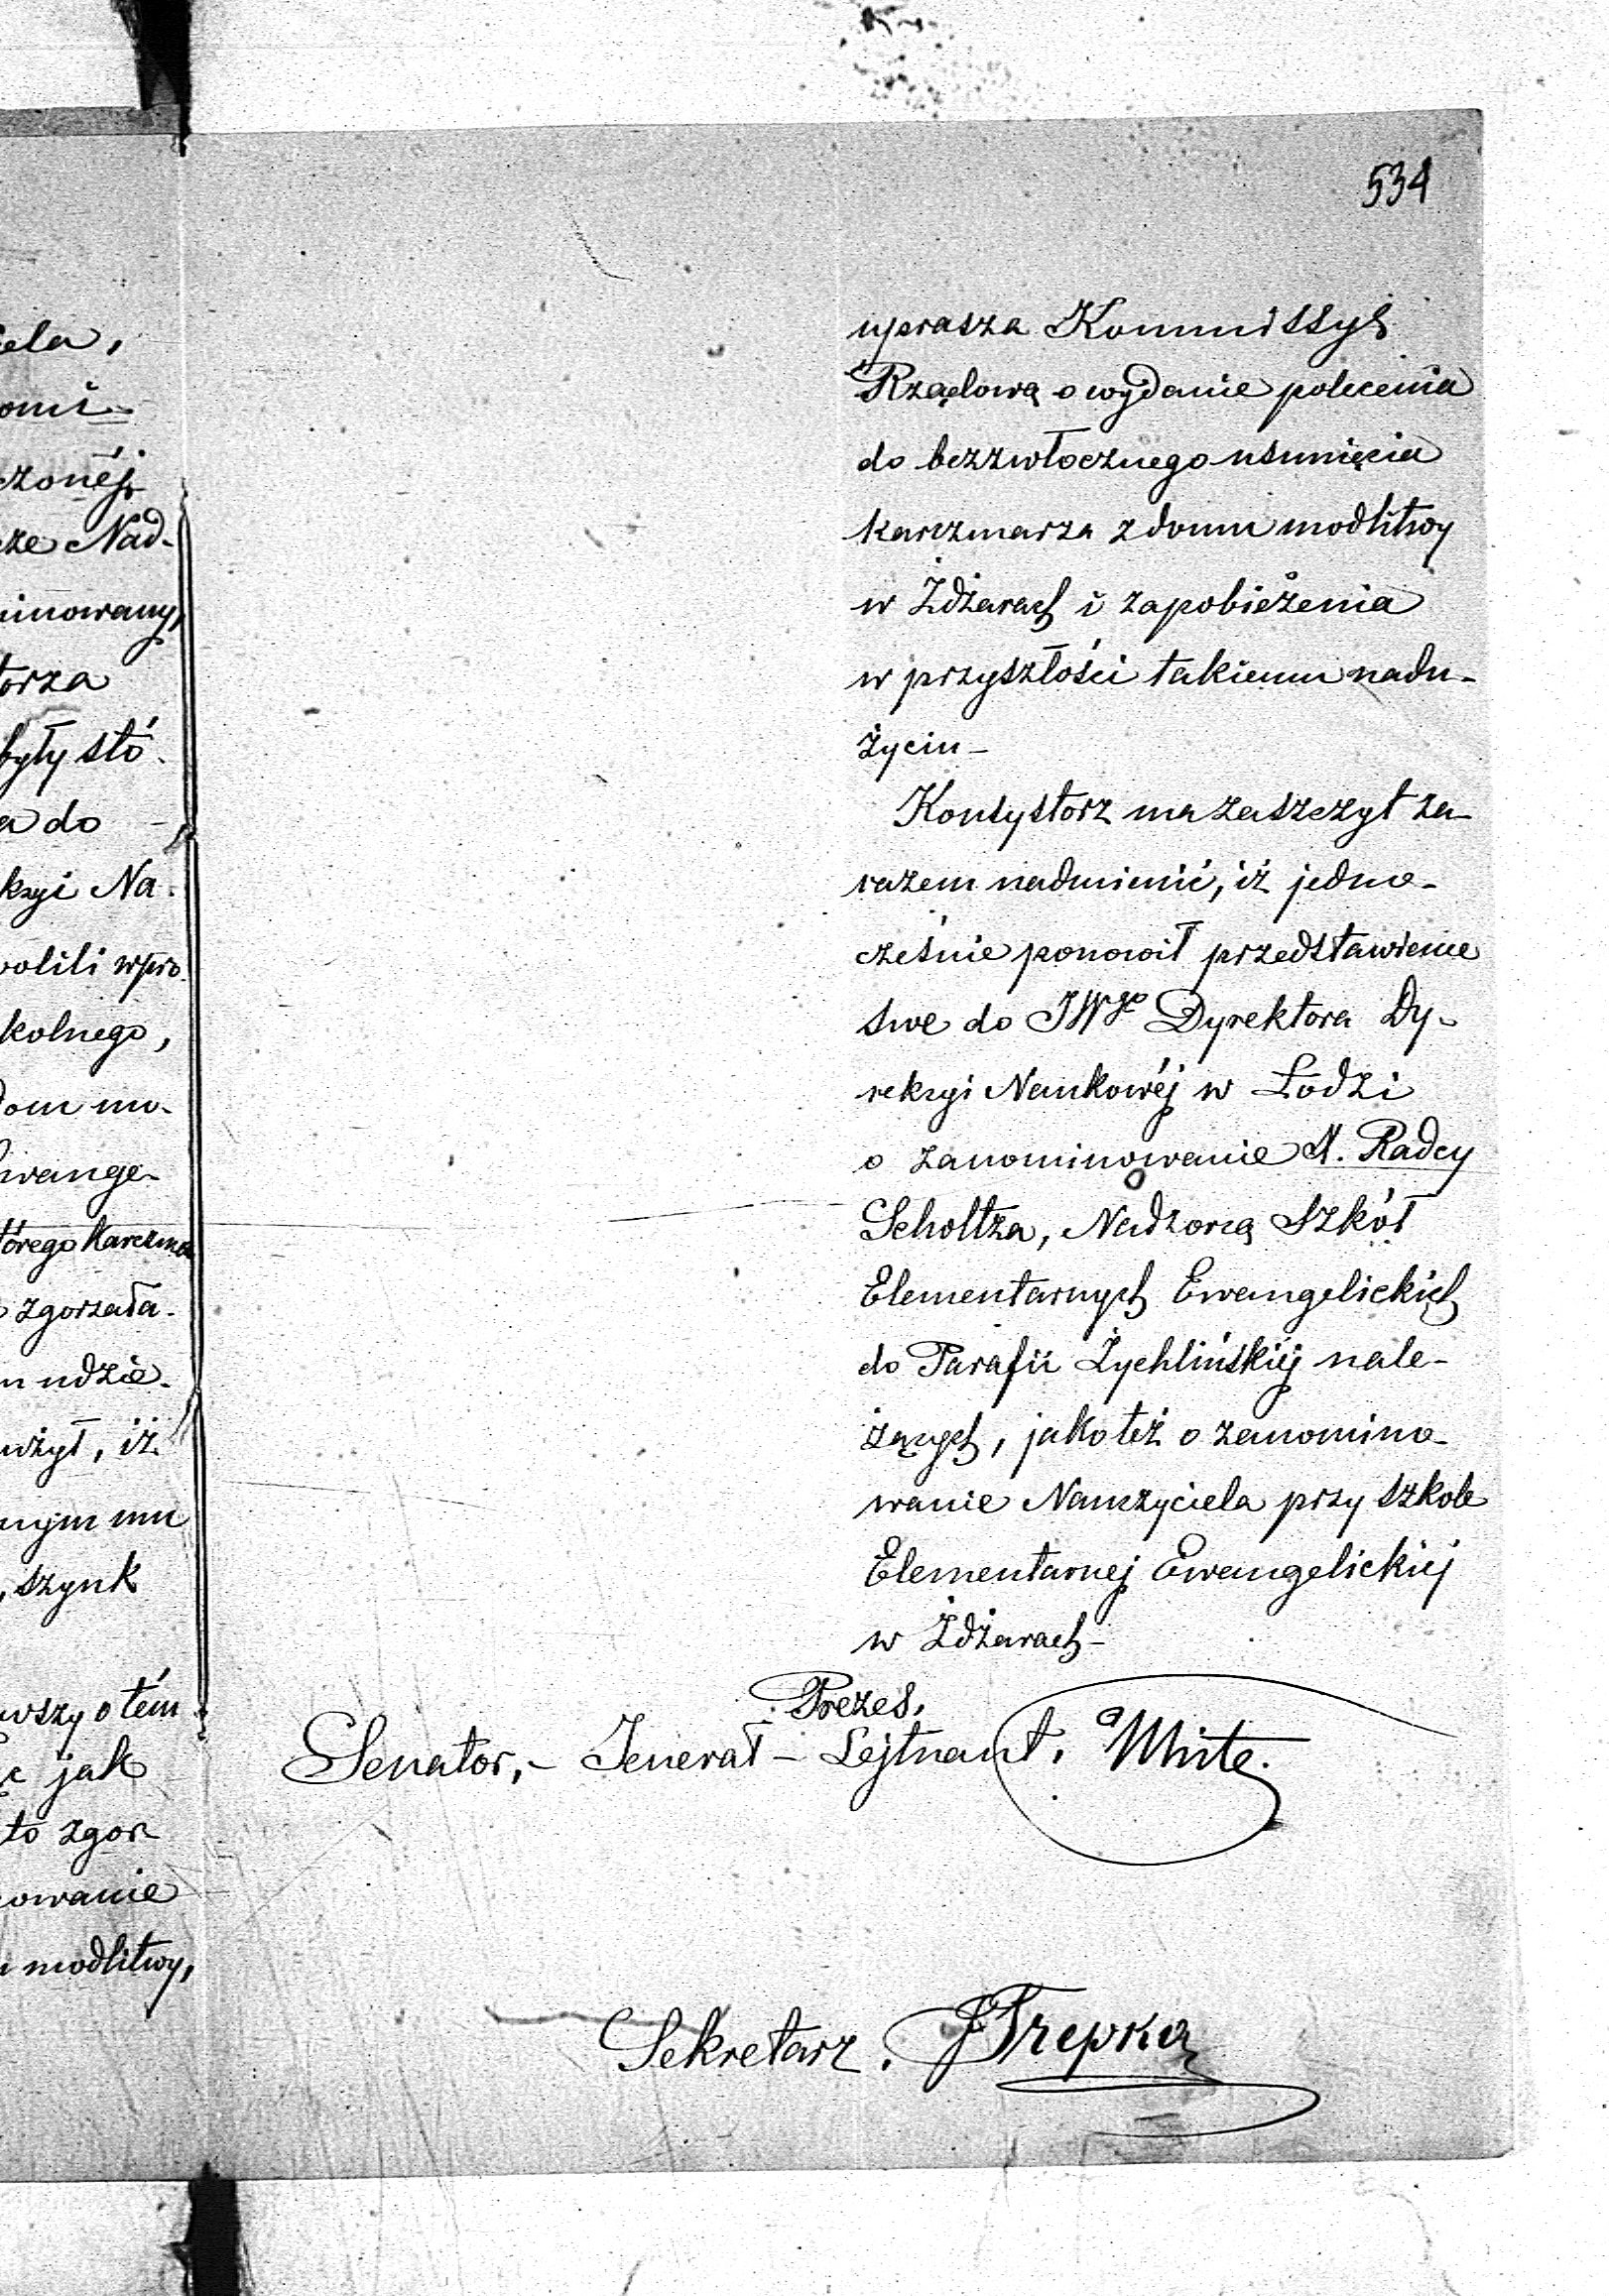 534
iela,
omi-
czonéj
cze Nad-
minowany,
torza
były stó-
a do
kcyi Na-
volili wpro-
kolnego,
dom mo-
Ewange-
tórego Karczma
zgorzała-
m udzie-
użył, iż
nym mu
, szynk
wszy o tém
jak
to zgor
owanie
modlitwy,
uprasza Kommissyę
Rządową o wydanie polecenia
do bezzwłocznego usunięcia
karczmarza z domu modlitwy
w Żdżarach i zapobieżenia
w przyszłości takiemu nadu-
życiu-
Konsystorz ma zaszczyt za-
razem nadmienić, iż jedno-
cześnie ponowił przedstawienie
swe do JWgo Dyrektora Dy-
rekcyi Naukowéj w Łodzi
o zanominowanie X. Radcy
Scholtza, Nadzorcą Szkół
Elementarnych Ewangelickich
do Parafii Żychlińskiéj nale-
żących, jako też o zanomino-
wanie Nauczyciela przy szkole
Elementarnej Ewangelickiéj
w Żdżarach-
Prezes.
Senator,- Jenerał- Lejtnant. White.
Sekretarz. JTrepka